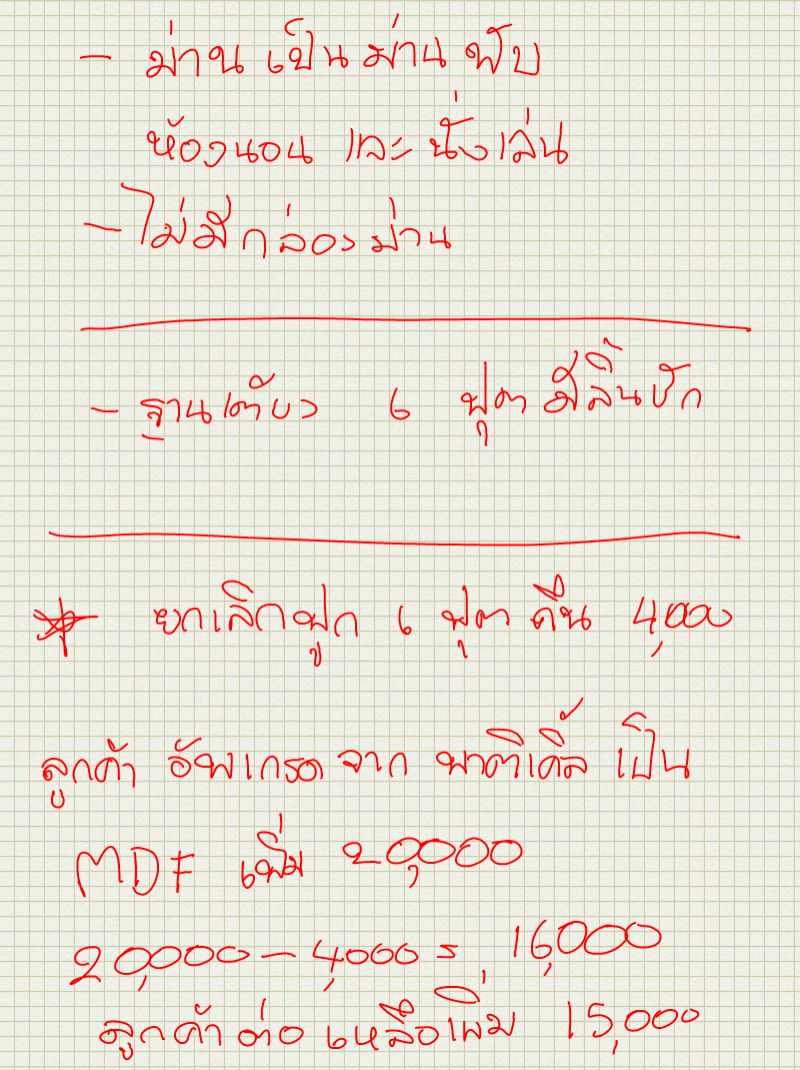 - ม่านเป็นม่านพับ
ห้องนอน และ นั่งเล่น
- ไม่มีกล่องม่าน
- ฐานเตียง 6 ฟุต มีลิ้นชัก
* ยกเลิกฟูก 6 ฟุต คืน 4,000
ลูกค้า อัพเกรด จาก พาติเคิ้ล เป็น
MDF เพิ่ม 20,000
20,000 - 4,000 = 16,000
ลูกค้าต่อ เหลือเพิ่ม 15,000